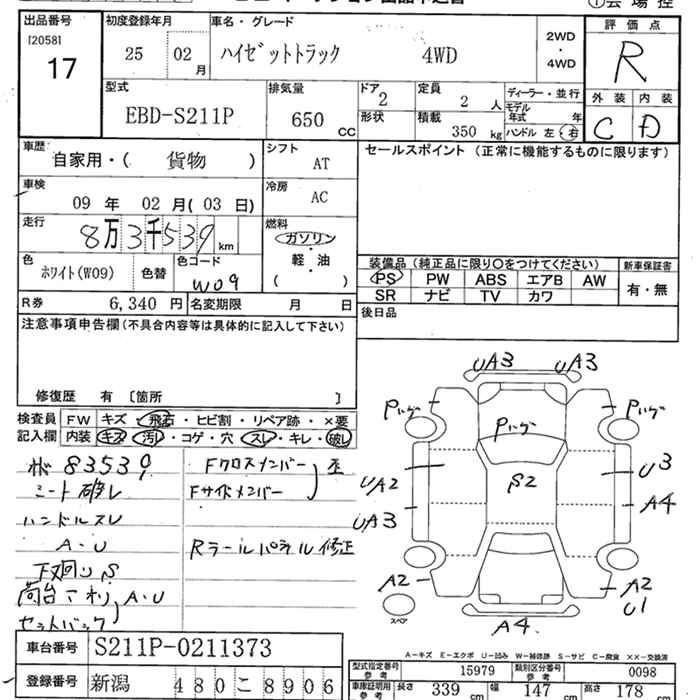 出品番号 初度登録年月 車名・グレード 評価点
[2058]
17
25 02 月
ハイゼットトラック 4WD
2WD
・
4WD
R
型式 排気量 ドア 定員 ディーラー・並行 外装 内装
EBD-S211P 650 CC 2 2 人 モデル年式 年
形状 積載 350 kg ハンドル 左・右
C D
車歴 自家用・( 貨物 ) シフト AT セールスポイント (正常に機能するものに限ります)
車検 09 年 02 月( 03 日) 冷房 AC
走行 8万3千539 km 燃料 ガソリン
軽・油
( )
色 ホワイト(W09) 色替 色コード W09
装備品 (純正品に限り○をつけてください) 新車保証書
PS PW ABS エアB AW 有・無
SR ナビ TV カワ
R券 6,340 円 名変期限 月 日 後日品
注意事項申告欄(不具合内容等は具体的に記入して下さい)
修復歴 有 〔箇所 〕
検査員 FW キズ・飛石・ヒビ割・リペア跡・×要
記入欄 内装 キズ・汚レ・コゲ・穴・スレ・キレ・破レ
83539 Fクロスメンバー
シート破レ Fサイドメンバー
ハンドルスレ
A・U Rラールパネル修正
下廻りS
荷台 A・U
セットバック
UA3 UA3
Pハゲ Pハゲ Pハゲ
S2
UA2 U3
UA3 A4
A2 A2
U1
スペア A4
A-キズ E-エクボ U-凹み W-補修跡 S-サビ C-腐食 ××-交換済
車台番号 S211P-0211373
型式指定番号 15979 類別区分番号 0098
登録番号 新潟 480 こ 8906
車庫証明用参考 長さ 339 cm 幅 147 cm 高さ 178 cm